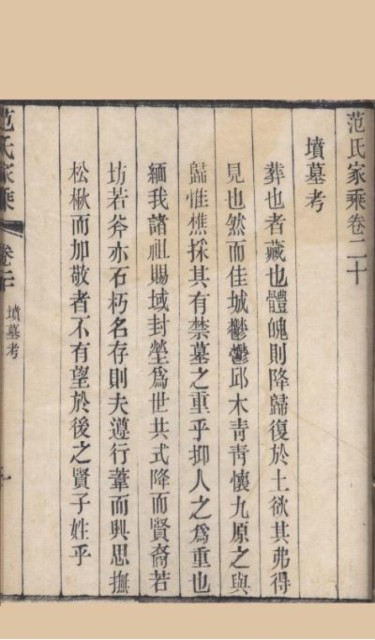 范氏家乘卷二十
墳墓考
葬也者藏也體魄則降歸復於土欲其弗得
見也然而佳城鬱鬱邱木青青懷九原之與
歸惟樵採其有禁墓之重乎抑人之為重也
緬我諸祖賜域封塋為世共式降而賢裔若
坊若斧亦石朽名存則夫遵行葦而興思撫
松楸而加敬者不有望於後之賢子姓乎
范氏家乘
卷二十
墳墓考